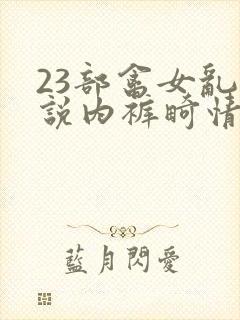 23部畜女亂
說内裤畸情
藍月閃愛